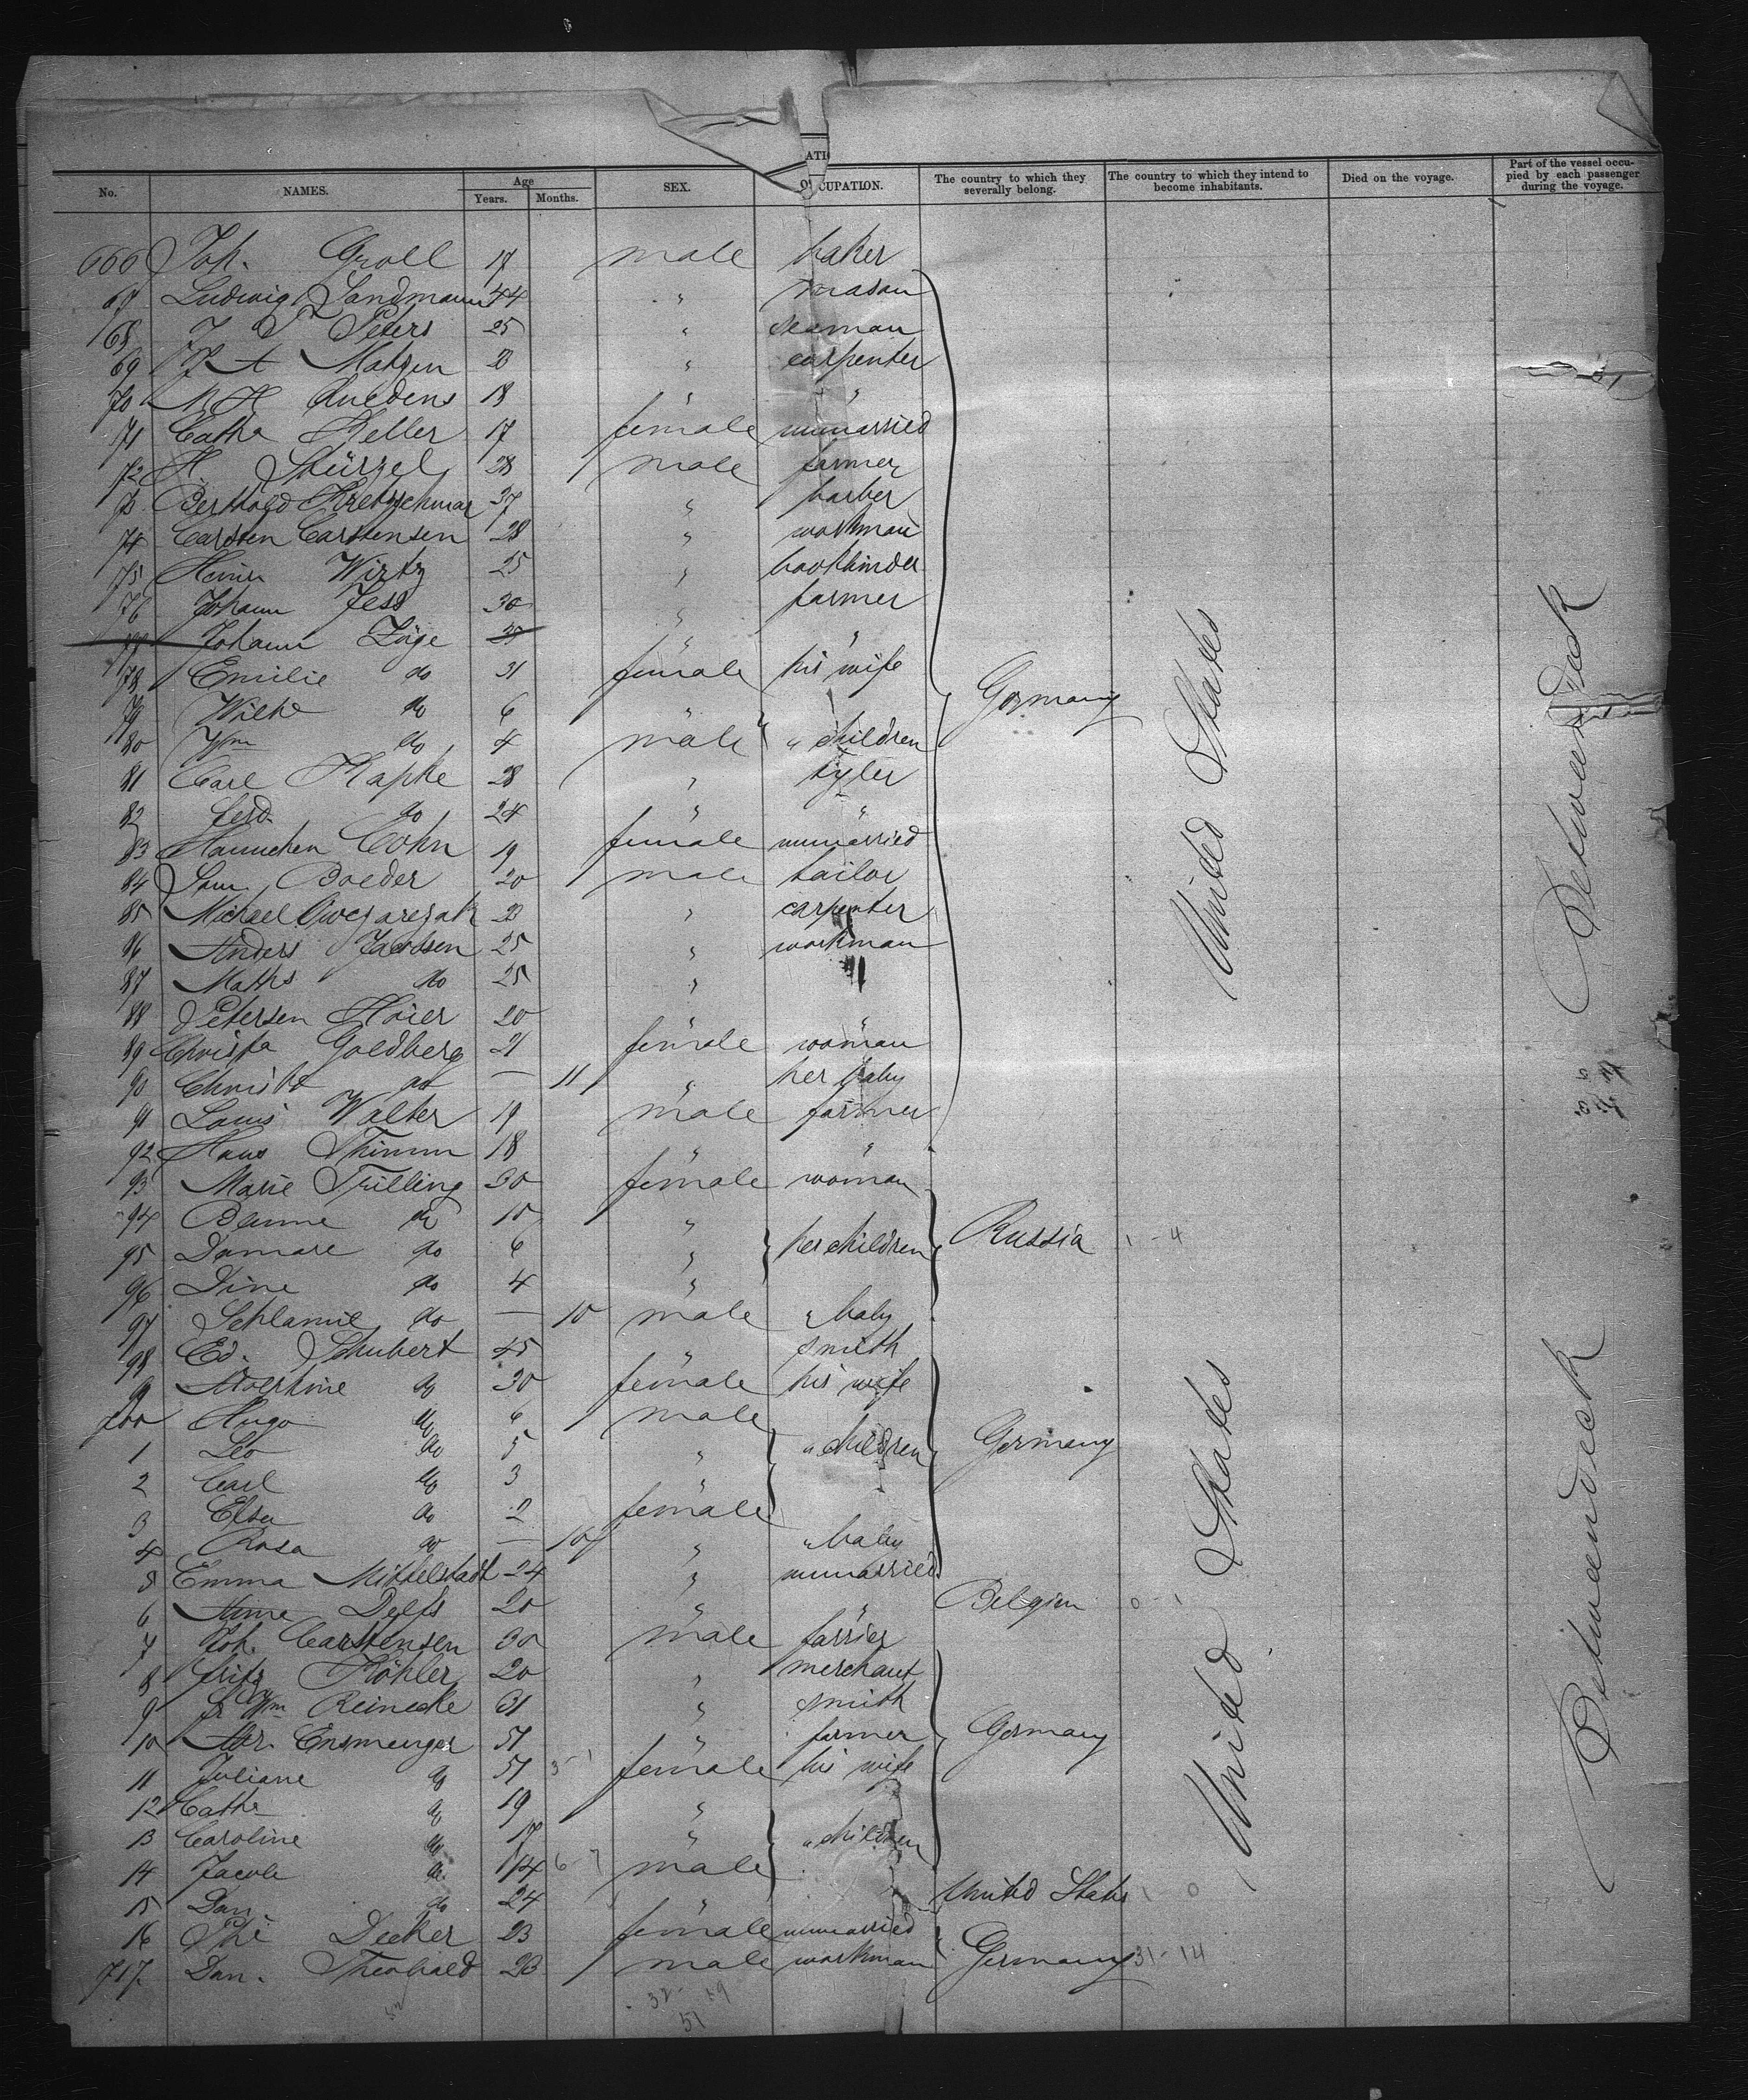 ATI
No. NAMES. Age Years. Months. SEX. OCCUPATION. The country to which they severally belong. The country to which they intend to become inhabitants. Died on the voyage. Part of the vessel occupied by each passenger during the voyage.
666 Joh. Groll 17 male baker
67 Ludwig Sandmann 44 " mason
68 J P Peters 25 " seaman
69 J A Matzen 23 " carpenter
70 N H Quedens 18 " "
71 Cathe Keller 17 female unmarried
72 H Stürzel 28 male farmer
73 Berthold Kretzschmar 37 " barber
74 Carsten Carstensen 28 " workman
75 Heinr Wirtz 25 " bookbinder
76 Johann Jess 30 " farmer
Johann Zöge " "
78 Emilie do 31 female his wife
79 Wilhe do 6 " Germany
80 Wm do 4 male " children
81 Carl Kapke 28 " tyler
82 Ferd. do 24 " "
83 Hannchen Cohn 19 female unmarried
84 Sam. Boeder 20 male tailor
85 Michael Owczarezak 23 " carpenter
86 Anders Jacobsen 25 " workman
87 Maths do 25 " "
88 Petersen Hoier 20 " "
89 Christa Goldberg 21 female woman
90 Christe do — 11 " her baby
91 Louis Walter 19 male farmer
92 Hans Thimm 18 " "
93 Marie Trilling 30 female woman
94 Benne do 10 "
95 Damare do 6 " her children Russia 1 - 4
96 Dine do 4 "
97 Schlamie do — 10 male " baby
98 Ed. Schubert 45 " smith
99 do 30 female his wife
700 Hugo do 6 male
1 Leo do 5 " " children Germany
2 Carl do 3 "
3 Elsa do 2 female
4 Rosa do — 10 " " baby
5 Emma Mittelstadt 24 " unmarried
6 Anne Delfs 20 " " Belgien 0 - 1
7 Joh. Carstensen 30 male farrier
8 Fritz Köhler 20 " merchant
9 Fr Wm Reinecke 61 " smith
10 Ensmenger 51 " farmer Germany
11 Juliane do 51 female his wife
12 Cathe do 19 "
13 Caroline do 17 " " children
14 Jacob do 14 6-7 male
15 Dan. do 24 " United States 1 0
16 Phi Decker 23 female unmarried
717. Dan. Theobald 23 male workman Germany 31-14
32 - 19
51
United States
United States
United
Betweendeck
Betweendeck